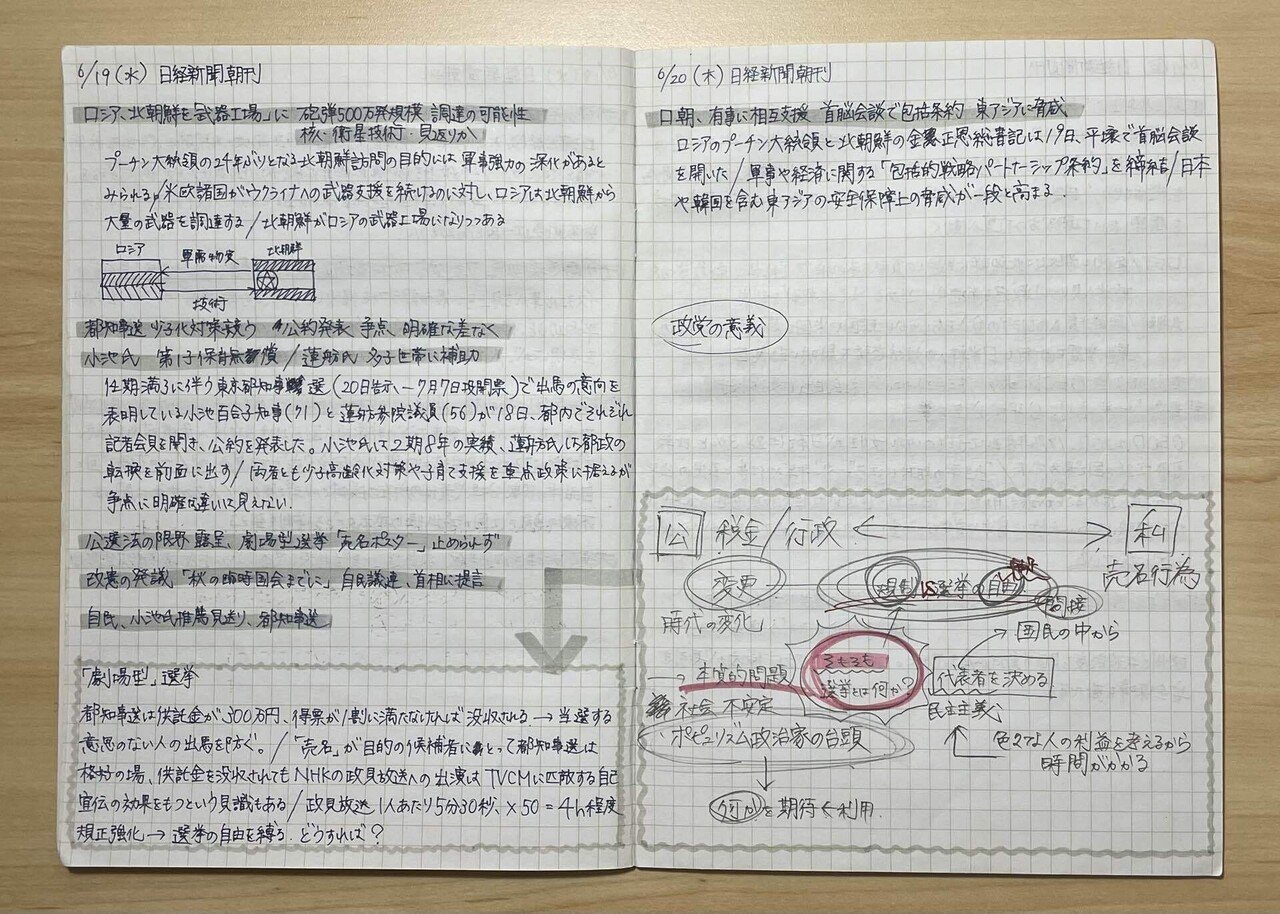 6/19(水) 日経新聞朝刊
ロシア、北朝鮮を「武器工場」に 砲弾500万発規模 調達の可能性
核・衛星技術・見返りか
プーチン大統領の24年ぶりとなる北朝鮮訪問の目的には軍事強力の深化があると
みられる。米欧諸国がウクライナへの武器支援を続けるのに対し、ロシアは北朝鮮から
大量の武器を調達する/北朝鮮がロシアの武器工場になりつつある
ロシア 軍需物資 北朝鮮
技術
都知事選 少子化対策競う 公約発表 争点、明確な差なく
小池氏 第1子保育無償/蓮舫氏 多子世帯に補助
任期満了に伴う東京都知事選(20日告示、ー7月7日投開票)で出馬の意向を
表明している小池百合子知事(71)と蓮舫参院議員(56)が18日、都内でそれぞれ
記者会見を開き、公約を発表した。小池氏は2期8年の実績、蓮舫氏は都政の
転換を前面に出す/両者とも少子高齢化対策や子育て支援を重点政策に据えるが
争点に明確な違いは見えない.
公選法の限界 露呈、劇場型選挙「売名ポスター」止められず
改憲の発議「秋の臨時国会までに」自民議連、首相に提言
自民、小池氏推薦見送り、都知事選
「劇場型」選挙
都知事選は供託金が300万円、得票が1割に満たなければ没収される→当選する
意思のない人の出馬を防ぐ。/「売名」が目的の候補者にとって都知事選は
格好の場、供託金を没収されてもNHKの政見放送への出演はTVCMに匹敵する自己
宣伝の効果をもつという見識もある/政見放送 1人あたり5分30秒、×50=4h程度
規正強化→選挙の自由を縛る. どうすれば?
6/20(木) 日経新聞朝刊
日朝、有事に相互支援 首脳会談で包括条約 東アジアに脅威
ロシアのプーチン大統領と北朝鮮の金正恩総書記は19日、平壌で首脳会談
を開いた/軍事や経済に関する「包括的戦略パートナーシップ条約」を締結/日本
や韓国を含む東アジアの安全保障上の脅威が一段と高まる.
政党の意義
公 税金/行政 ←→ 私
変更 規制 vs 選挙の自由 売名行為
間接
時代の変化 → 国民の中から
→本質的問題 そもそも
選挙とは何か? 代表者を決める
社会 不安定 民主主義
ポピュリズム政治家の台頭 色々な人の利益を考えるから
時間がかかる
何かを期待←利用